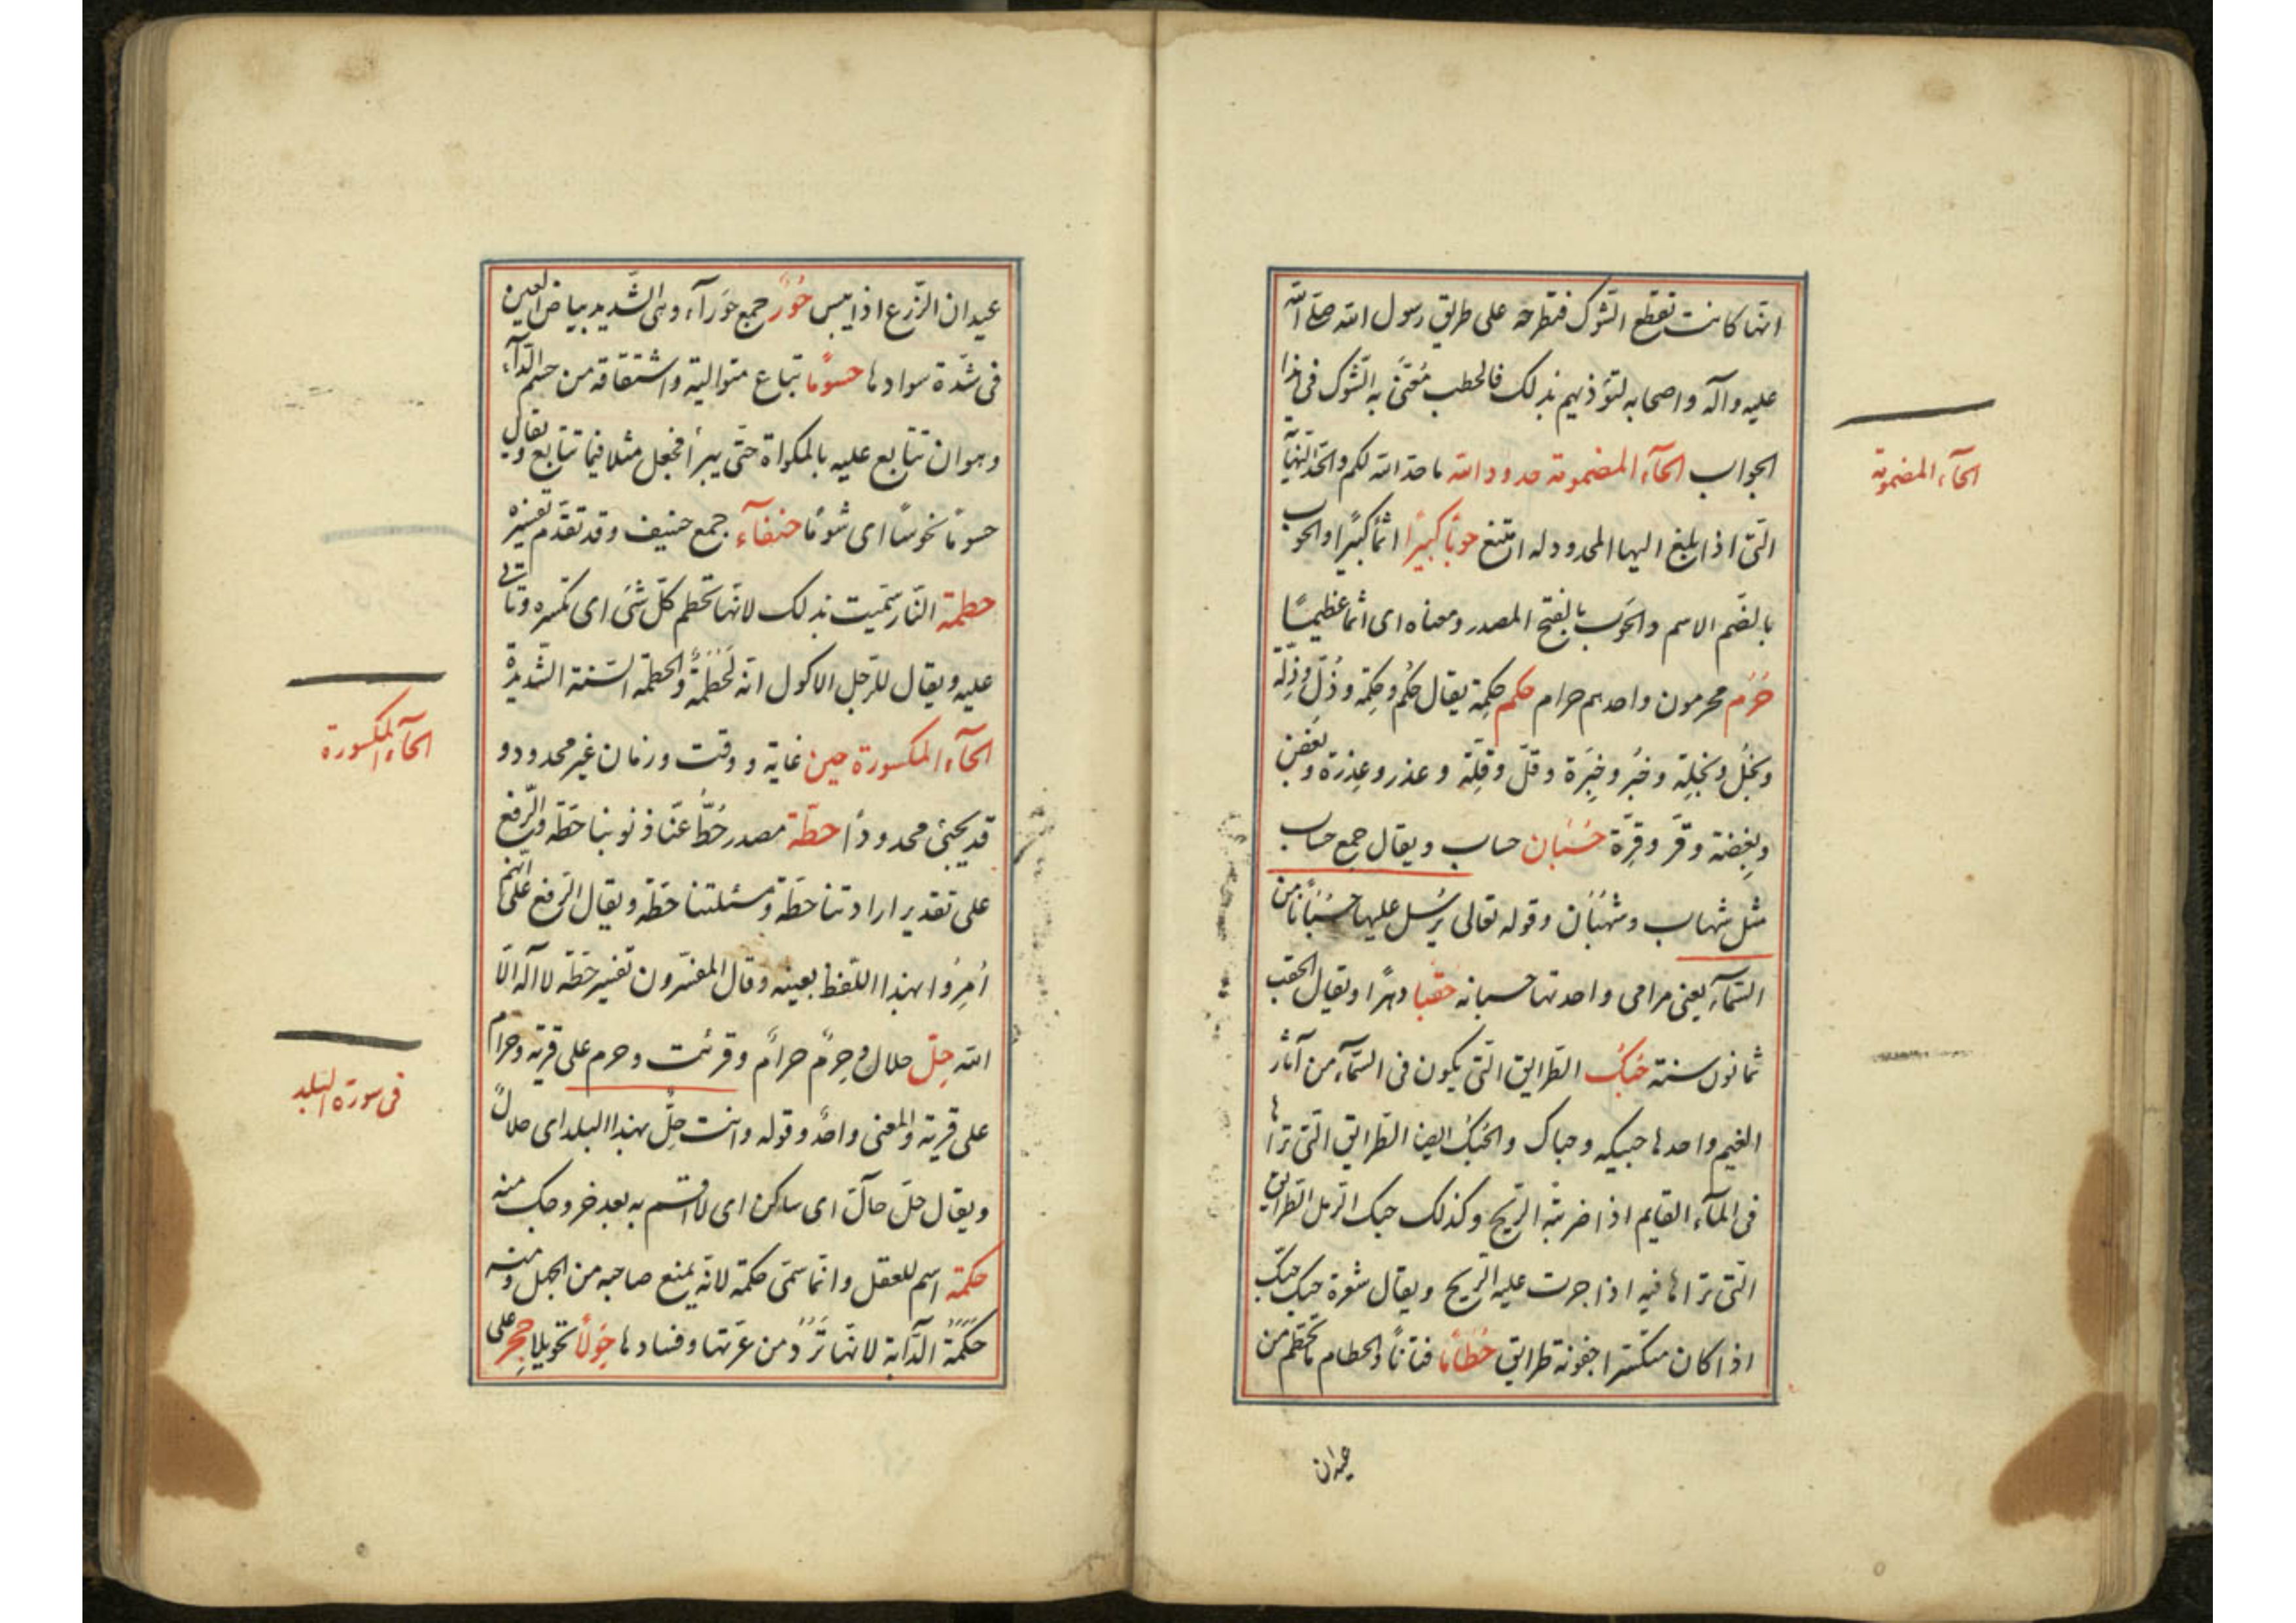 انها كانت تقطع الشوك فتطرحه على طريق رسول الله صلى الله
عليه وآله واصحابه لتؤذيهم بذلك فالحطب مُعْنًى به الشوك فى هذا
الجواب الحآء المضمومة حدود الله ما حدّ الله لكم والحدّ النهاية
الحآء المضمومة
التى اذا بلغ اليها المحدود له امتنع حوبًا كبيرًا اثمًا كبيرًا والحوب
بالضّم الاسم والحَوب بالفتح المصدر ومعناه اى اثما عظيمًا
حُرُم محرمون واحدهم حرام حكم حِكمة يقال حُكم وحِكمة وذُلّ وذِلّة
وبُخل وبِخلة وخُبر وخِبرَة وقلّ وقِلّة وعذر وعِذرة وبُغض
وبِغضة وقرّ وقِرّة حُسْبَان حساب ويقال جمع حساب
مثل شهاب وشُهْبَان وقوله تعالى يُرْسل عليها حُسْبَانًا من
السّمآء يعنى مرامى واحدتها حسبانه حقبا دهرًا ويقال الحقب
ثمانون سنة حُبُك الطرايق التى يكون فى السّمآء من آثار
الغيم واحدها حبيكه وحباك والحُبُك ايضا الطرايق التى تراها
فى المآء القايم اذا ضربته الريح وكذلك حبك الرمل الطرايق
التى تراها فيه اذا جرت عليه الريح ويقال شعره حبك حبك
اذا كان متكسّرا جفونة طرايق حُطَامًا فتاتًا والحطام ما تحطّم من
عيدان
عيدان الزّرع اذا يبس حُورٌ جمع حَورآء وهى الشّديد بياض العين
فى شدّة سوادها حسومًا تباع متوالية واشتقاقه من حسم الدّآء
وهو ان تتابع عليه بالمكواة حتّى يبرأ فجعل مثلا فيما تتابع ويقال
حسومًا نحوسًا اى شومًا حنفآء جمع حنيف وقد تقدّم تفسيره
حطمة النّار سمّيت بذلك لانها تحطم كلّ شئ اى تكسره وتاتى
عليه ويقال للرّجل الاكول انه لَحُطَمَةٌ والحطمة السّنة الشّديدة
الحآء المكسورة حين غاية ووقت وزمان غير محدود و
الحآء المكسورة
قد يجئ محدودًا حطّة مصدر حُطَّ عنّا ذنوبنا حطّة والرّفع
على تقدير ارادتنا حطّة ومسئلتنا حطّة ويقال الرفع على انهم
اُمِرُوا بهذا اللّفظ بعينه وقال المفسّرون تفسير حطّة لا آله الّا
الله حِلّ حلال وحِرمٌ حرامٌ وقرئت وحرم على قرية وحرام
على قرية والمعنى واحد وقوله وانت حِلٌّ بهذا البلد اى حلالٌ
فى سورة البلد
ويقال حلّ حآلّ اى ساكن اى لا اقسم به بعد خروجك منه
حكمة اسم للعقل وانّما سمّى حكمة لانه يمنع صاحبه من الجهل ومنه
حَكَمَة الدّآبة لانها تَرُدّ من غربتها وفسادها حِوَلًا تحويلا حِجر على